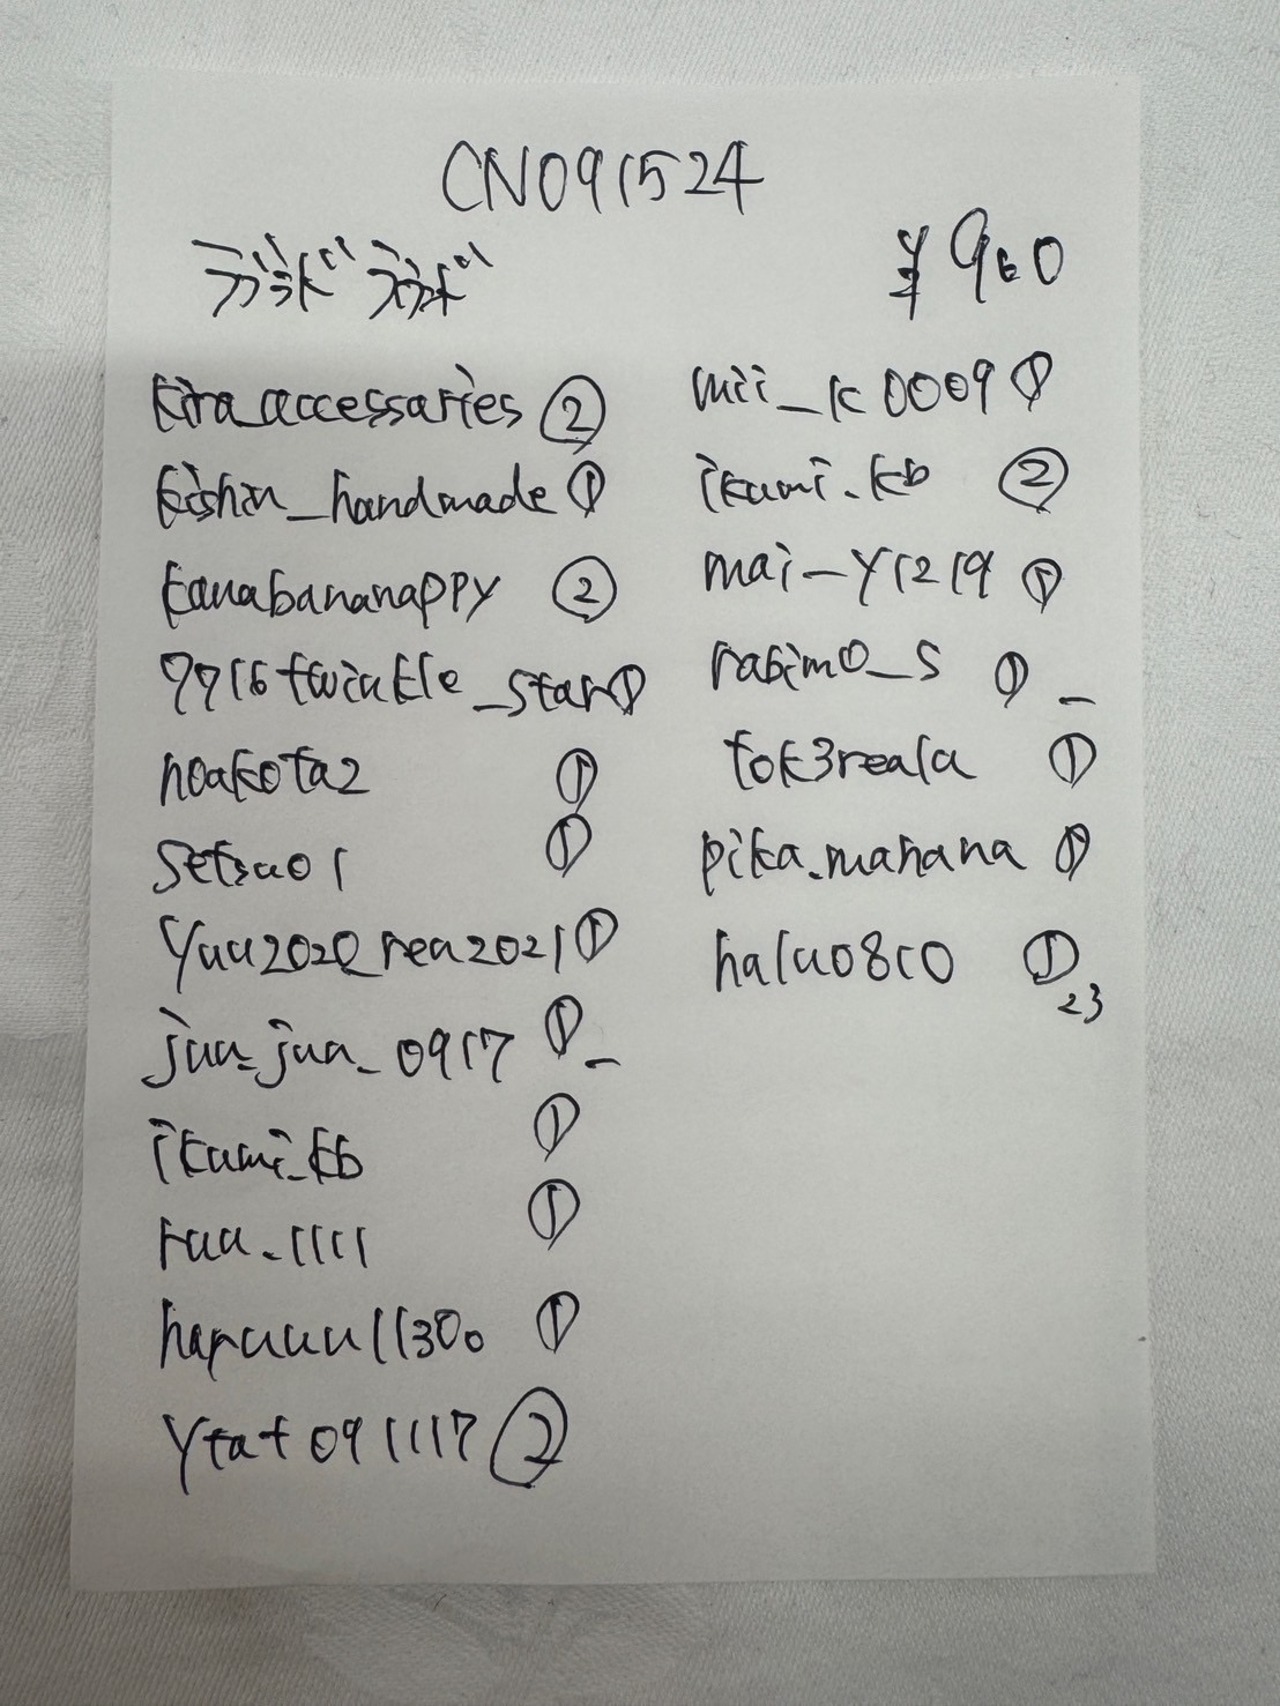 CN091524
¥960
kira_accessaries ②
kishin_handmade ①
kanabananappy ②
7716twinkle_star①
noakota2 ①
setsuo1 ①
yuu2020_reu2021①
juu_juu_0917 ①_
ikumi_kb ①
ruu_1111 ①
haruuuu1130o ①
ytat091117 ②
mii_k0009①
ikumi.kb ②
mai_y1219 ①
rabimo_s ①_
tok3reala ①
pika.manana ①
halu0810 ①
23